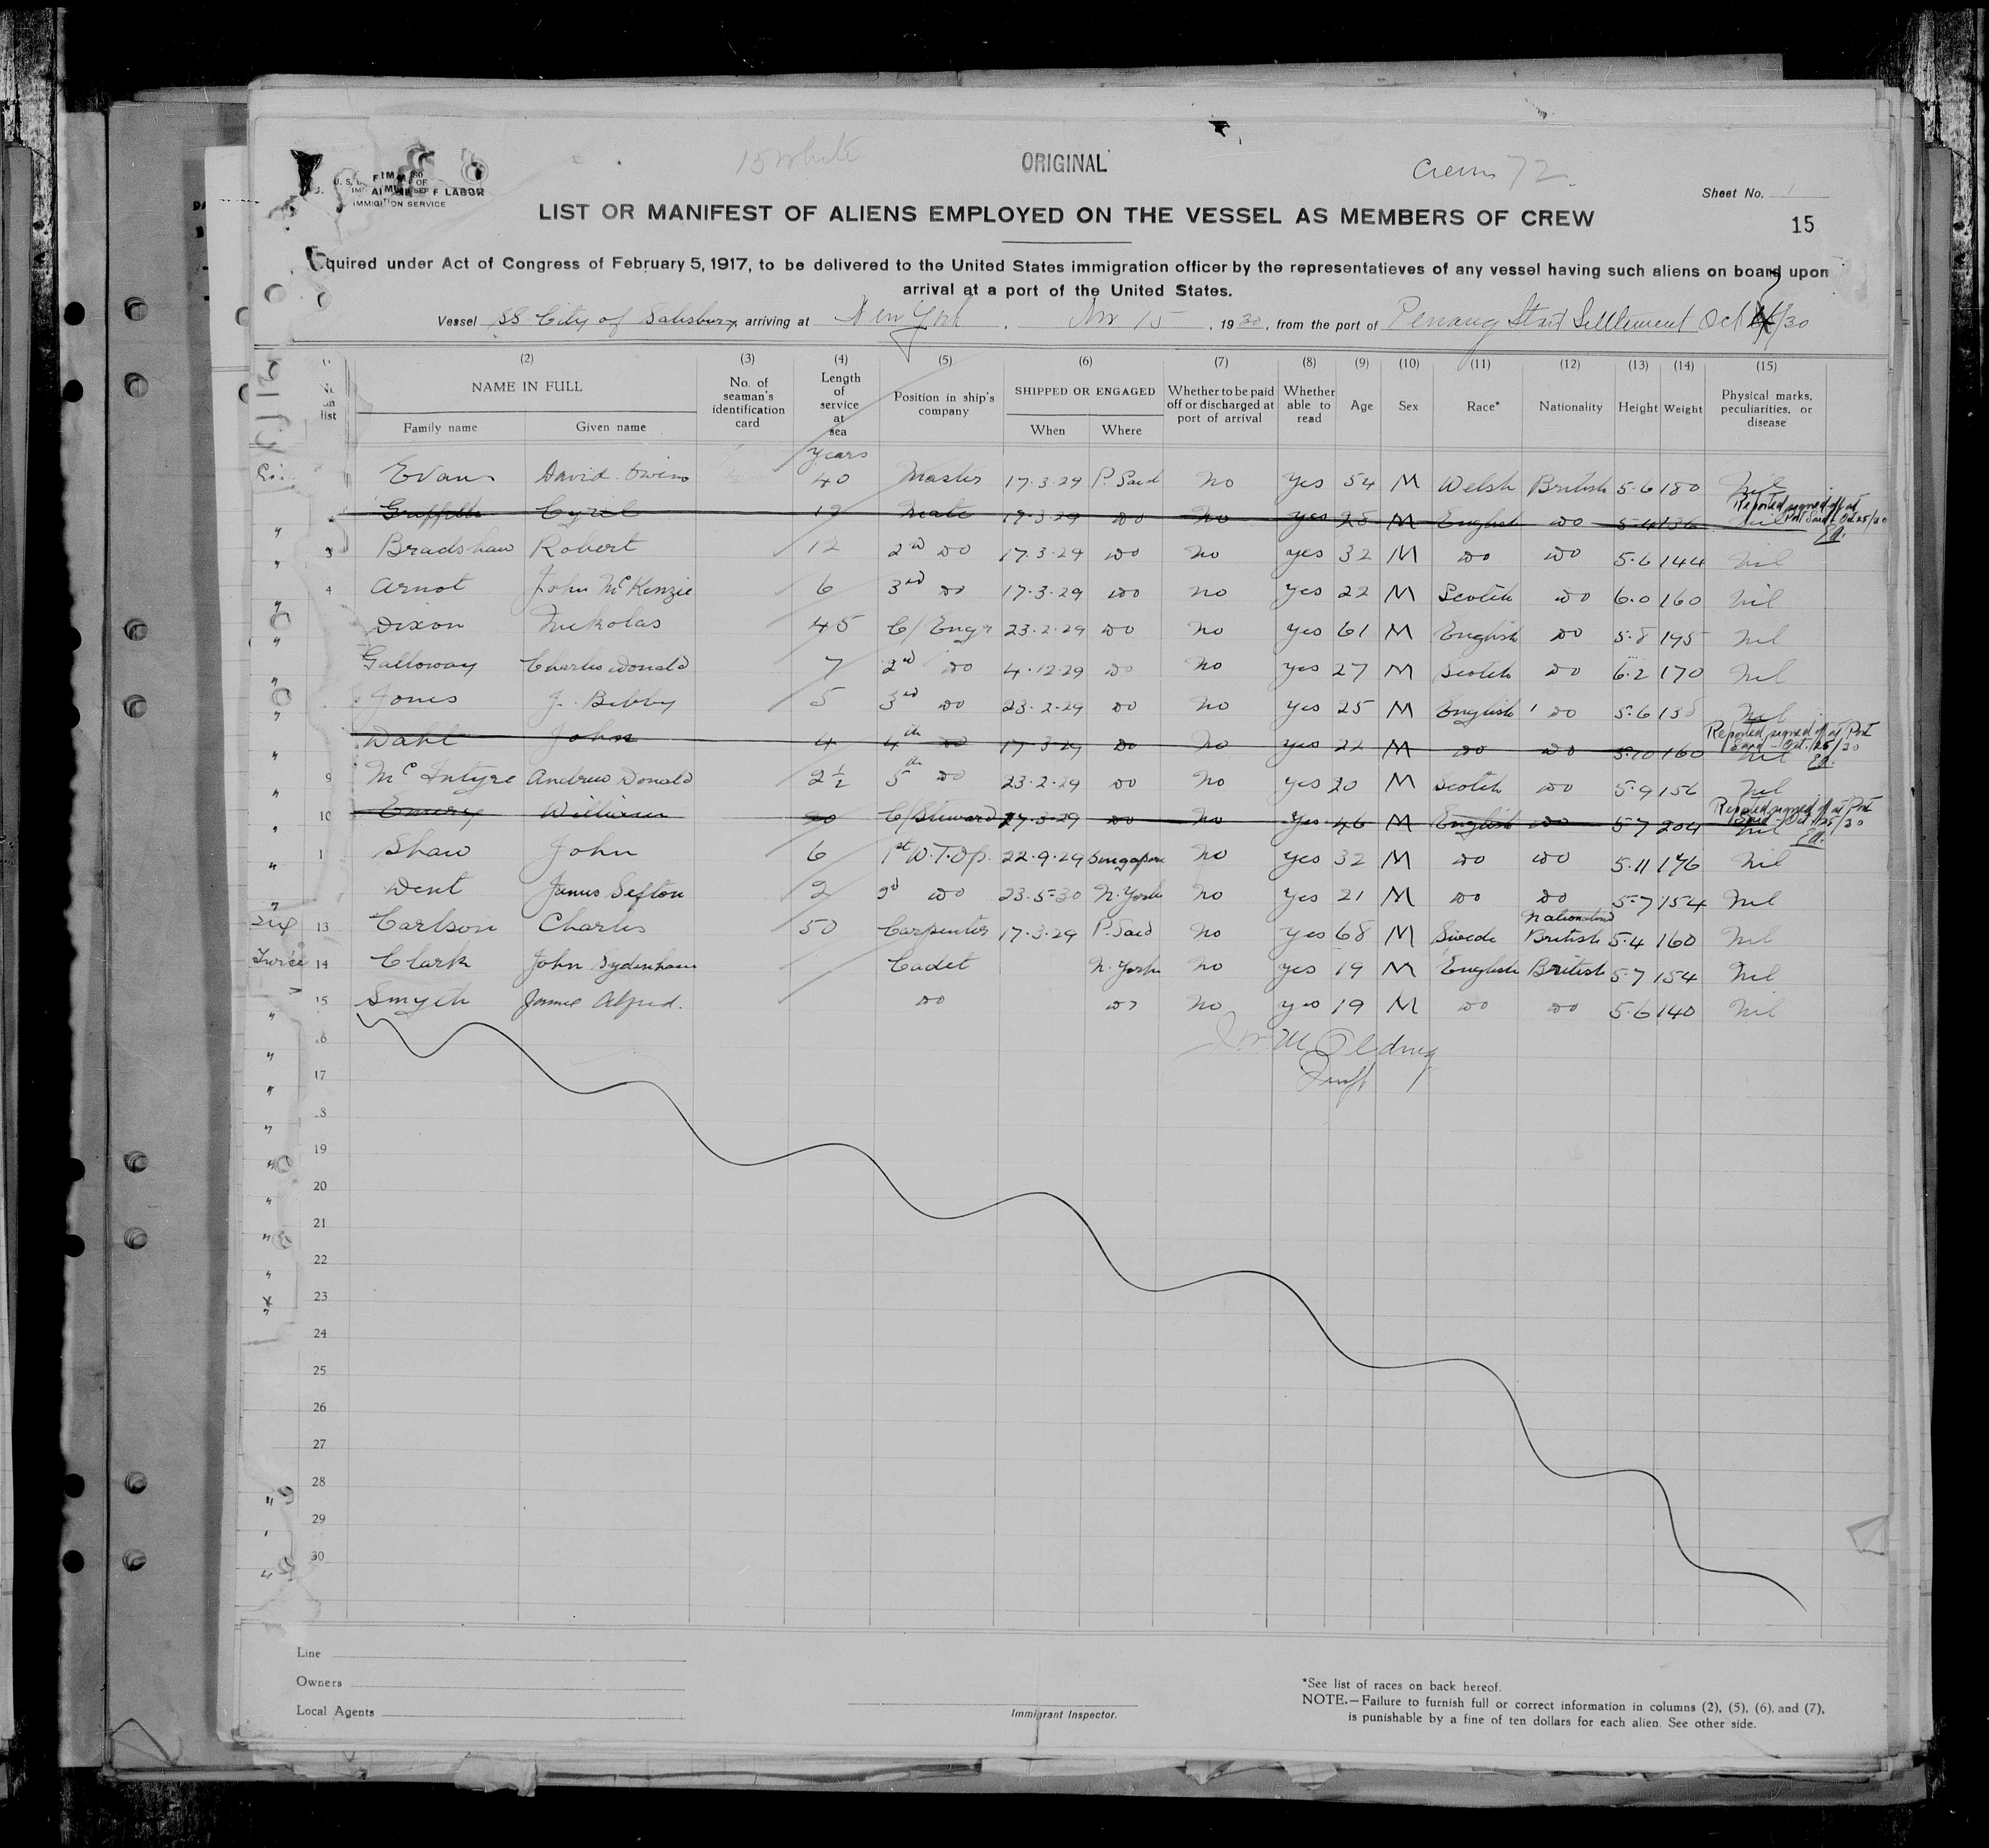 15 White
ORIGINAL
Crew 72.
U. S. OF LABOR
IMMIGRATION SERVICE
Sheet No. 1
LIST OR MANIFEST OF ALIENS EMPLOYED ON THE VESSEL AS MEMBERS OF CREW
15
quired under Act of Congress of February 5, 1917, to be delivered to the United States immigration officer by the representatieves of any vessel having such aliens on board upon
arrival at a port of the United States.
Vessel SS City of Salisbury, arriving at New York, Nov 15, 1930, from the port of Penang Strait Settlement Oct /30
(2) (3) (4) (5) (6) (7) (8) (9) (10) (11) (12) (13) (14) (15)
list NAME IN FULL Family name Given name No. of seaman's identification card Length of service at sea Position in ship's company SHIPPED OR ENGAGED When Where Whether to be paid off or discharged at port of arrival Whether able to read Age Sex Race* Nationality Height Weight Physical marks, peculiarities, or disease
years
Evans David Owen 40 Master 17.3.29 P. Said No Yes 54 M Welsh British 5.6 180 Nil
Reported signed off at
Port Said Oct 25/30
Griffith Cyril 12 Mate 17.3.29 Do No yes 28 M English Do 5-4 136 Nil
Ed.
3 Bradshaw Robert 12 2nd Do 17.3.29 Do No yes 32 M Do Do 5.6 144 Nil
4 Arnot John McKenzie 6 3rd Do 17.3.29 Do No yes 22 M Scotch Do 6.0 160 Nil
Dixon Nickolas 45 C/Engr 23.2.29 Do No yes 61 M English Do 5.8 195 Nil
Galloway Charles Donald 7 2nd Do 4.12.29 Do No yes 27 M Scotch Do 6.2 170 Nil
Jones J. Bibby 5 3rd Do 23.2.29 Do No yes 25 M English Do 5.6 138 Nil
Reported signed off at Port
Said - Oct. 25/30
Dahl John 4 4th Do 17.3.29 Do No yes 22 M Do Do 5.10 160 Nil
Ed.
9 Mc Intyre Andrew Donald 2½ 5th Do 23.2.29 Do No yes 20 M Scotch Do 5.9 156 Nil
Reported signed off at Port
Said - Oct 25/30
10 Emery William 30 C/Steward 17.3.29 Do No Yes 46 M English Do 5.7 204 Nil
Ed.
1 Shaw John 6 1st W.T.Op. 22.9.29 Singapore No yes 32 M Do Do 5.11 176 Nil
Dent James Sefton 2 2d Do 23.5.30 N. York No Yes 21 M Do Do 5.7 154 Nil
13 Carlson Charles 50 Carpenter 17.3.29 P. Said No yes 68 M Swede Nationalised British 5.4 160 Nil
Twice 14 Clark John Sydenham Cadet N. York No yes 19 M English British 5.7 154 Nil
15 Smyth James Alfred. Do Do No yes 19 M Do Do 5.6 140 Nil
17
19
20
21
22
23
24
25
26
27
28
29
30
Line
Owners
Local Agents
Immigrant Inspector.
*See list of races on back hereof.
NOTE.—Failure to furnish full or correct information in columns (2), (5), (6), and (7),
is punishable by a fine of ten dollars for each alien. See other side.